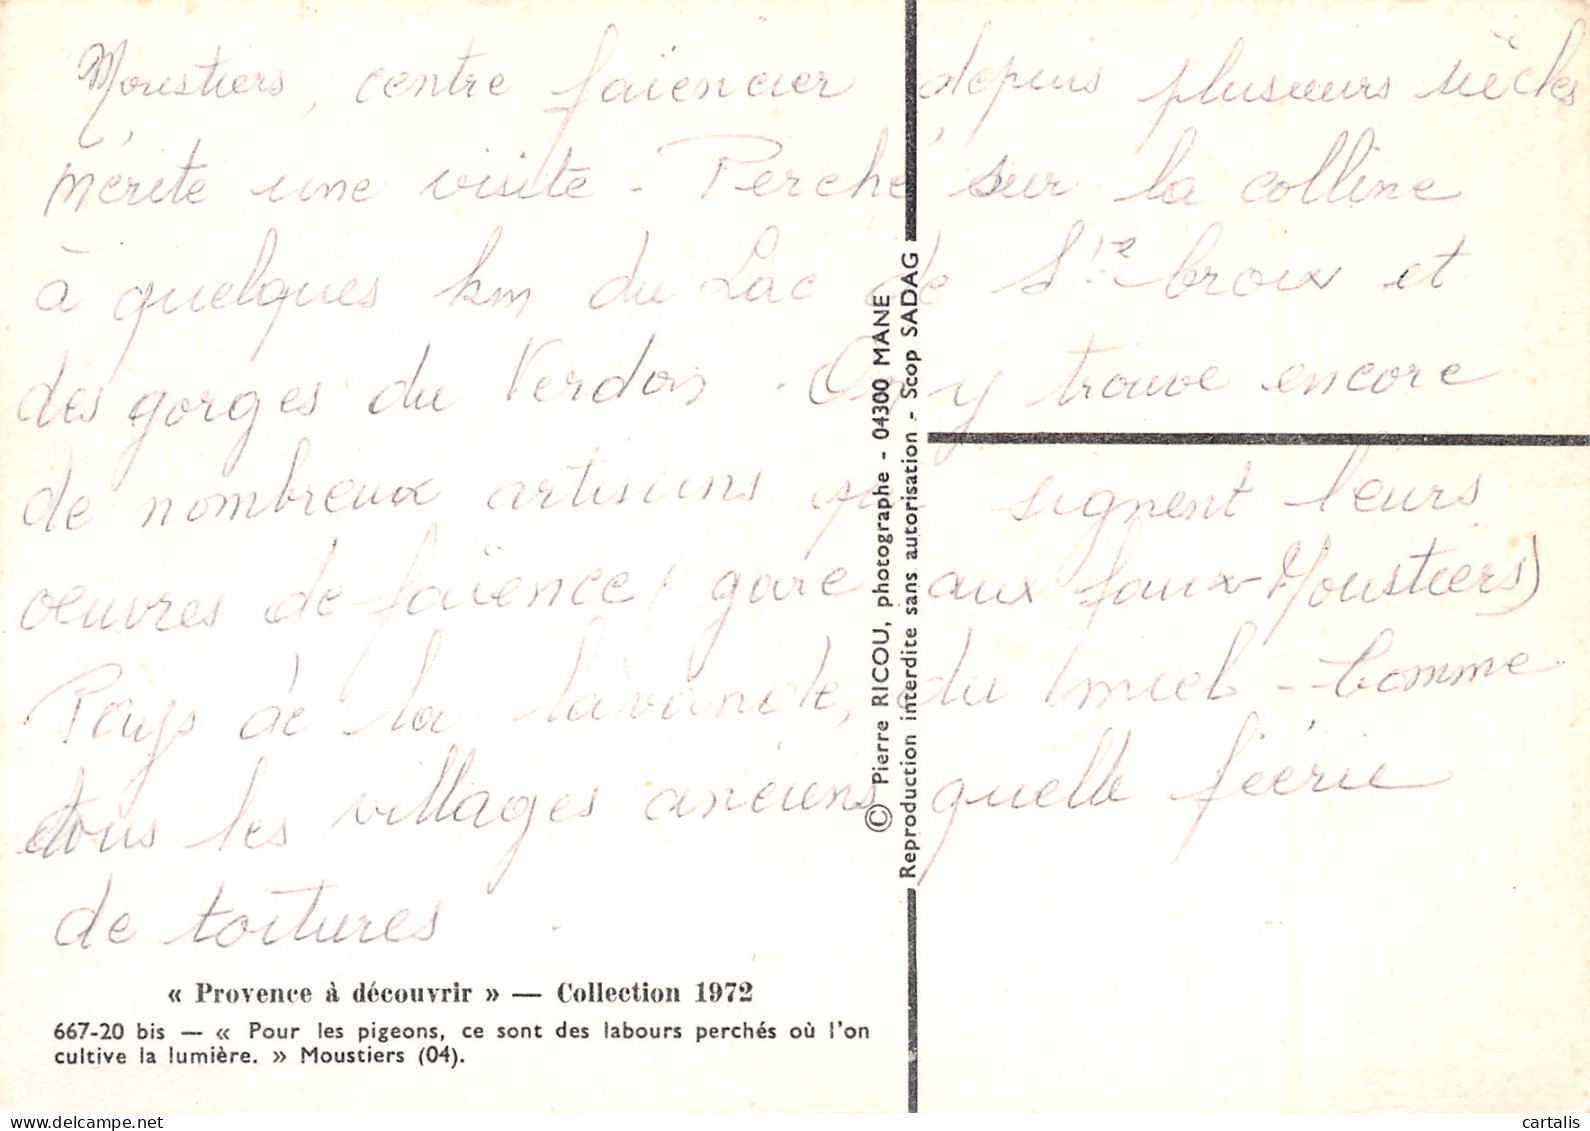 Moustiers, centre faïencier depuis plusieurs siècles
mérite une visite - Perché sur la colline
à quelques km du Lac de Ste Croix et
des gorges du Verdon. On y trouve encore
de nombreux artisans qui signent leurs
oeuvres de faïence (gare aux faux-Moustiers)
Pays de la lavande, du miel - Comme
tous les villages anciens quelle féerie
de toitures
« Provence à découvrir » — Collection 1972
667-20 bis — « Pour les pigeons, ce sont des labours perchés où l'on
cultive la lumière. » Moustiers (04).
© Pierre RICOU, photographe - 04300 MANE
Reproduction interdite sans autorisation - Scop SADAG
cartalis